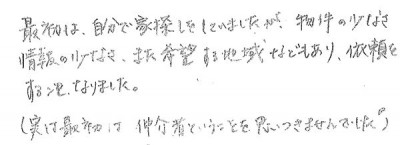 最初は、自分で家探しをしていましたが、物件の少なさ
情報の少なさ、また希望する地域などもあり、依頼を
する事になりました。
(実は最初は仲介者ということを思いつきませんでした)